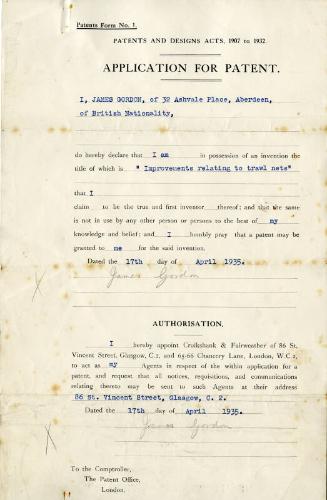 Patents Form No. 1.
PATENTS AND DESIGNS ACTS, 1907 to 1932.
APPLICATION FOR PATENT.
I, JAMES GORDON, of 32 Ashvale Place, Aberdeen,
of British Nationality,
do hereby declare that I am in possession of an invention the
title of which is "Improvements relating to trawl nets"
that I
claim to be the true and first inventor thereof; and that the same
is not in use by any other person or persons to the best of my
knowledge and belief; and I humbly pray that a patent may be
granted to me for the said invention.
Dated the 17th day of April 1935.
James Gordon
AUTHORISATION.
I hereby appoint Cruikshank & Fairweather of 86 St.
Vincent Street, Glasgow, C.2, and 65-66 Chancery Lane, London, W.C.2,
to act as my Agents in respect of the within application for a
patent, and request that all notices, requisitions, and communications
relating thereto may be sent to such Agents at their address
86 St. Vincent Street, Glasgow, C. 2.
Dated the 17th day of April 1935.
James Gordon
To the Comptroller,
The Patent Office,
London.